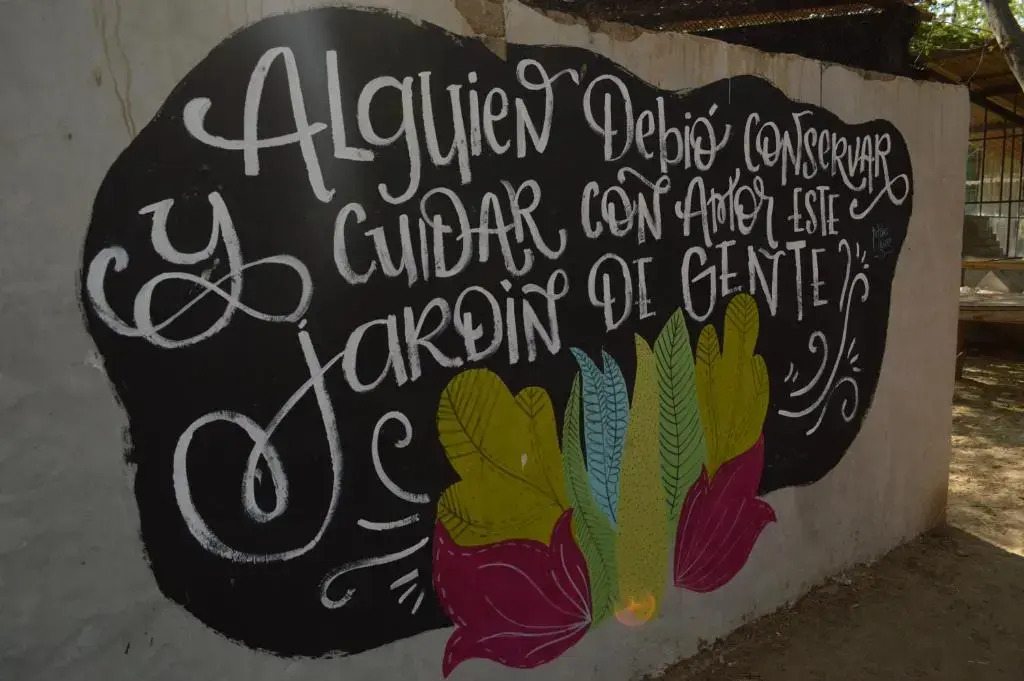 Alguien Debió conservar
y cuidar con amor este
jardín de gente